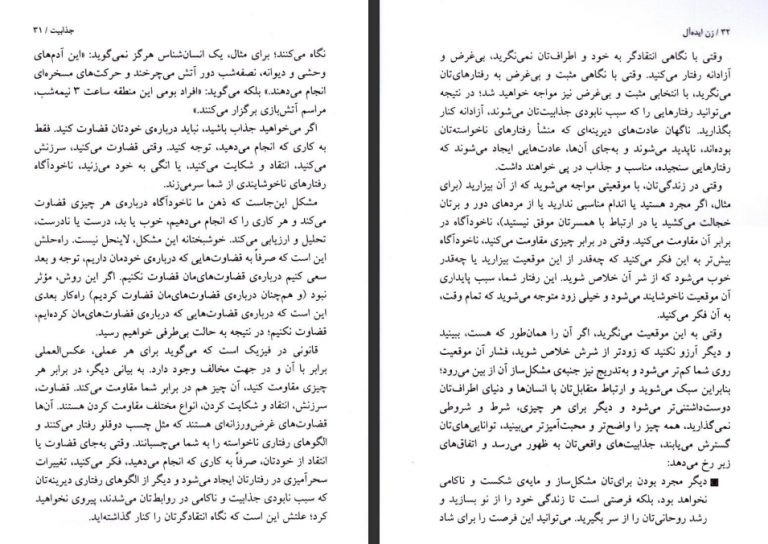 جذابیت / ۳۱
نگاه می‌کنند؛ برای مثال، یک انسان‌شناس هرگز نمی‌گوید: «این آدم‌های
وحشی و دیوانه، نصفه‌شب دور آتش می‌چرخند و حرکت‌های مسخره‌ای
انجام می‌دهند.» بلکه می‌گوید: «افراد بومی این منطقه ساعت ۳ نیمه‌شب،
مراسم آتش‌بازی برگزار می‌کنند.»
اگر می‌خواهید جذاب باشید، نباید درباره‌ی خودتان قضاوت کنید. فقط
به کاری که انجام می‌دهید، توجه کنید. وقتی قضاوت می‌کنید، سرزنش
می‌کنید، انتقاد و شکایت می‌کنید، یا انگی به خود می‌زنید، ناخودآگاه
رفتارهای ناخوشایندی از شما سرمی‌زند.
مشکل این‌جاست که ذهن ما ناخودآگاه درباره‌ی هر چیزی قضاوت
می‌کند و هر کاری را که انجام می‌دهیم، خوب یا بد، درست یا نادرست،
تحلیل و ارزیابی می‌کند. خوشبختانه این مشکل، لاینحل نیست. راه‌حلش
این است که صرفاً به قضاوت‌هایی که درباره‌ی خودمان داریم، توجه و بعد
سعی کنیم درباره‌ی قضاوت‌های‌مان قضاوت نکنیم. اگر این روش، مؤثر
نبود (و هم‌چنان درباره‌ی قضاوت‌های‌مان قضاوت کردیم) راه‌کار بعدی
این است که درباره‌ی قضاوت‌هایی که درباره‌ی قضاوت‌های‌مان کرده‌ایم،
قضاوت نکنیم؛ در نتیجه به حالت بی‌طرفی خواهیم رسید.
قانونی در فیزیک است که می‌گوید برای هر عملی، عکس‌العملی
برابر با آن و در جهت مخالف وجود دارد. به بیانی دیگر، در برابر هر
چیزی مقاومت کنید، آن چیز هم در برابر شما مقاومت می‌کند. قضاوت،
سرزنش، انتقاد و شکایت کردن، انواع مختلف مقاومت کردن هستند. آن‌ها
قضاوت‌های غرض‌ورزانه‌ای هستند که مثل چسب دوقلو رفتار می‌کنند و
الگوهای رفتاری ناخواسته را به شما می‌چسبانند. وقتی به‌جای قضاوت یا
انتقاد از خودتان، صرفاً به کاری که انجام می‌دهید، فکر می‌کنید، تغییرات
سحرآمیزی در رفتارتان ایجاد می‌شود و دیگر از الگوهای رفتاری دیرینه‌تان
که سبب نابودی جذابیت و ناکامی در روابط‌تان می‌شدند، پیروی نخواهید
کرد؛ علتش این است که نگاه انتقادگرتان را کنار گذاشته‌اید.
۳۲ / زن ایده‌آل
وقتی با نگاهی انتقادگر به خود و اطراف‌تان نمی‌نگرید، بی‌غرض و
آزادانه رفتار می‌کنید. وقتی با نگاهی مثبت و بی‌غرض به رفتارهای‌تان
می‌نگرید، با انتخابی مثبت و بی‌غرض نیز مواجه خواهید شد؛ در نتیجه
می‌توانید رفتارهایی را که سبب نابودی جذابیت‌تان می‌شوند، آزادانه کنار
بگذارید. ناگهان عادت‌های دیرینه‌ای که منشأ رفتارهای ناخواسته‌تان
بوده‌اند، ناپدید می‌شوند و به‌جای آن‌ها، عادت‌هایی ایجاد می‌شوند که
رفتارهایی سنجیده، مناسب و جذاب در پی خواهند داشت.
وقتی در زندگی‌تان، با موقعیتی مواجه می‌شوید که از آن بیزارید (برای
مثال، اگر مجرد هستید یا اندام مناسبی ندارید یا از مردهای دور و برتان
خجالت می‌کشید یا در ارتباط با همسرتان موفق نیستید)، ناخودآگاه در
برابر آن مقاومت می‌کنید. وقتی در برابر چیزی مقاومت می‌کنید، ناخودآگاه
بیش‌تر به این فکر می‌کنید که چه‌قدر از این موقعیت بیزارید یا چه‌قدر
خوب می‌شود که از شر آن خلاص شوید. این رفتار شما، سبب پایداری
آن موقعیت ناخوشایند می‌شود و خیلی زود متوجه می‌شوید که تمام وقت،
به آن فکر می‌کنید.
وقتی به این موقعیت می‌نگرید، اگر آن را همان‌طور که هست، ببینید
و دیگر آرزو نکنید که زودتر از شرش خلاص شوید، فشار آن موقعیت
روی شما کم‌تر می‌شود و به‌تدریج نیز جنبه‌ی مشکل‌ساز آن از بین می‌رود؛
بنابراین سبک می‌شوید و ارتباط متقابل‌تان با انسان‌ها و دنیای اطراف‌تان
دوست‌داشتنی‌تر می‌شود و دیگر برای هر چیزی، شرط و شروطی
نمی‌گذارید، همه چیز را واضح‌تر و محبت‌آمیزتر می‌بینید، توانایی‌های‌تان
گسترش می‌یابند، جذابیت‌های واقعی‌تان به ظهور می‌رسد و اتفاق‌های
زیر رخ می‌دهد:
▣ دیگر مجرد بودن برای‌تان مشکل‌ساز و مایه‌ی شکست و ناکامی
نخواهد بود، بلکه فرصتی است تا زندگی خود را از نو بسازید و
رشد روحانی‌تان را از سر بگیرید. می‌توانید این فرصت را برای شاد